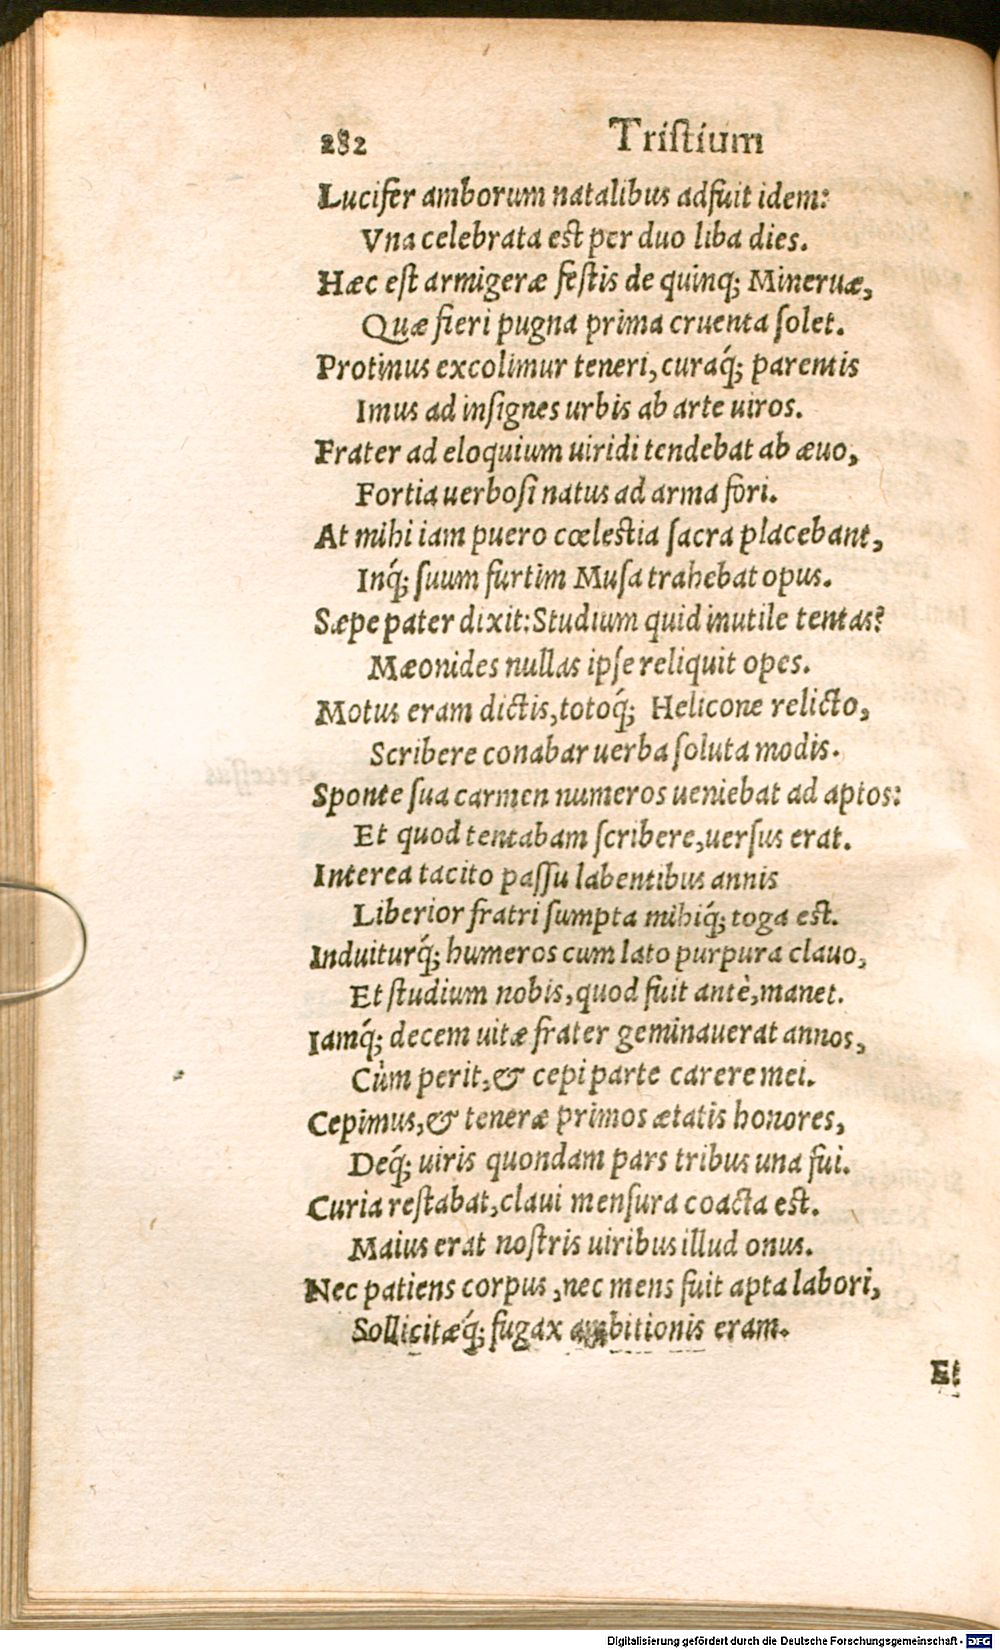 282 Tristium
Lucifer amborum natalibus adfuit idem:
Vna celebrata est per duo liba dies.
Hæc est armigeræ festis de quinq; Mineruæ,
Quæ fieri pugna prima cruenta solet.
Protinus excolimur teneri, curaq́; parentis
Imus ad insignes urbis ab arte uiros.
Frater ad eloquium uiridi tendebat ab æuo,
Fortia uerbosi natus ad arma fori.
At mihi iam puero cœlestia sacra placebant,
Inq́; suum furtim Musa trahebat opus.
Sæpe pater dixit: Studium quid inutile tentas?
Mæonides nullas ipse reliquit opes.
Motus eram dictis, totoq́; Helicone relicto,
Scribere conabar uerba soluta modis.
Sponte sua carmen numeros ueniebat ad aptos:
Et quod tentabam scribere, uersus erat.
Interea tacito passu labentibus annis
Liberior fratri sumpta mihiq́; toga est.
Induiturq́; humeros cum lato purpura clauo,
Et studium nobis, quod fuit antè, manet.
Iamq́; decem uitæ frater geminauerat annos,
Cùm perit, & cepi parte carere mei.
Cepimus, & teneræ primos ætatis honores,
Deq́; uiris quondam pars tribus una fui.
Curia restabat, claui mensura coacta est.
Maius erat nostris uiribus illud onus.
Nec patiens corpus, nec mens fuit apta labori,
Sollicitæq́; fugax ambitionis eram.
Et
Digitalisierung gefördert durch die Deutsche Forschungsgemeinschaft - DFG